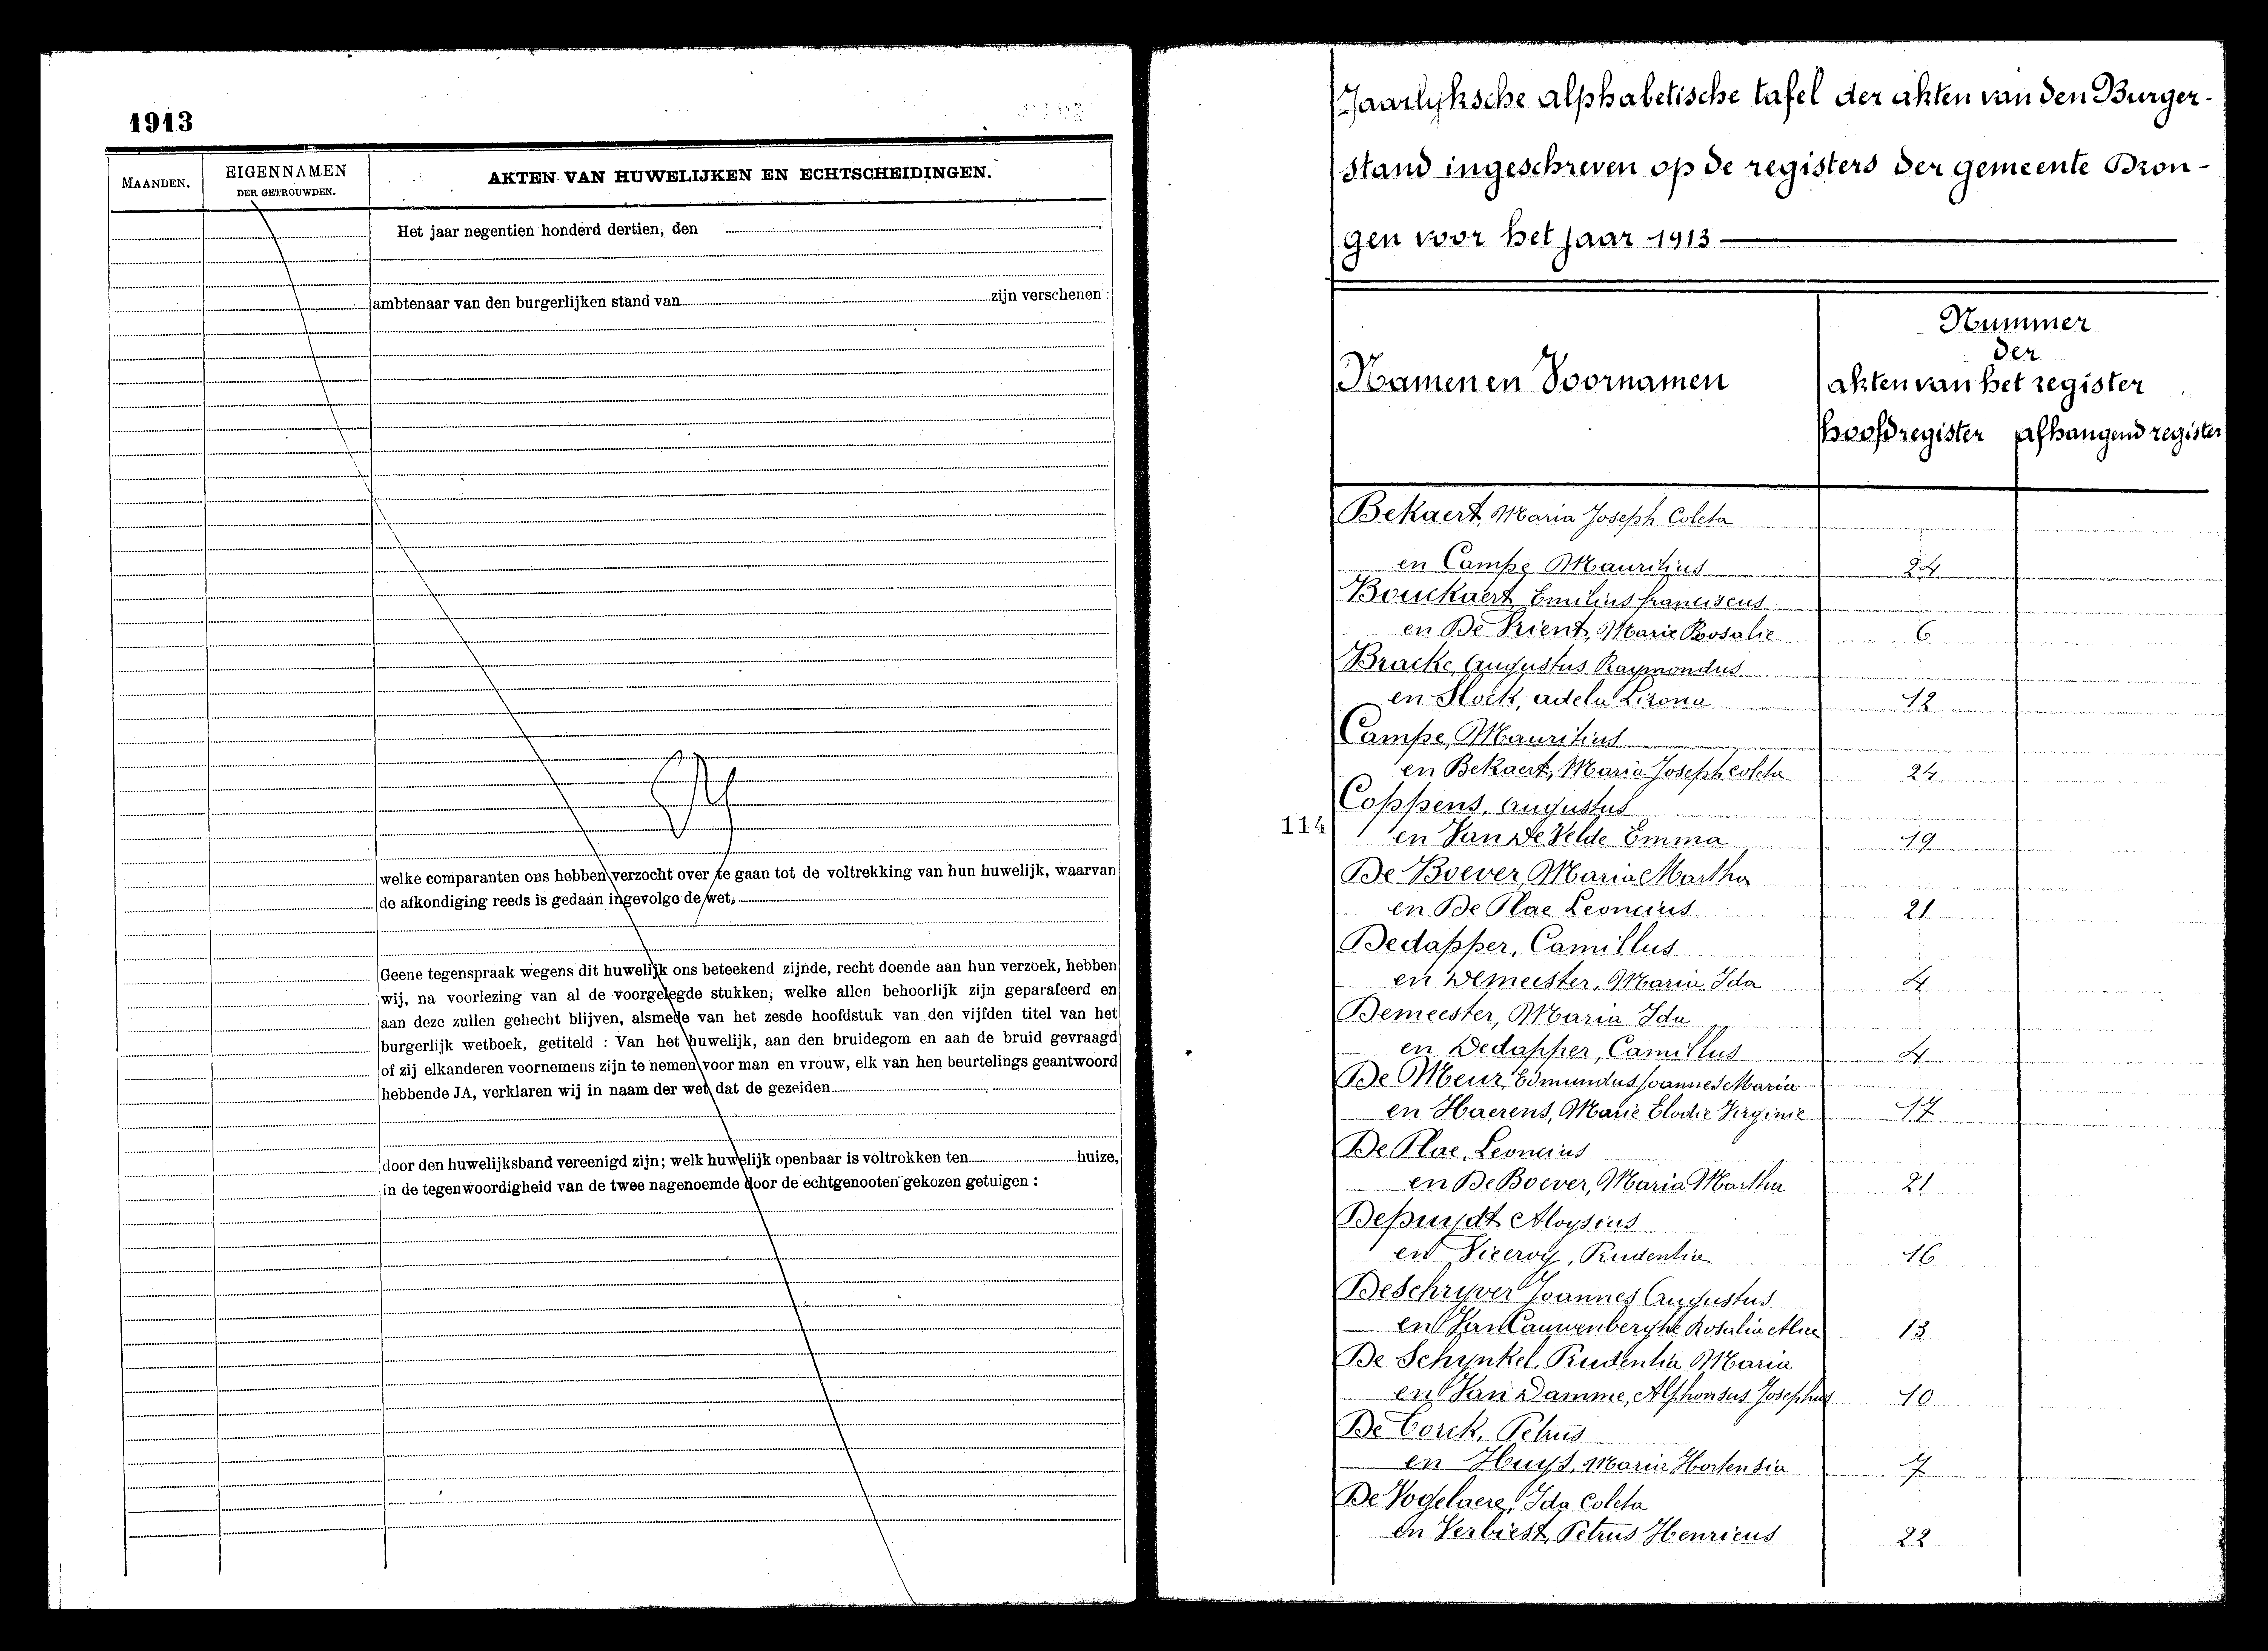 1913
MAANDEN.
EIGENNAMEN
DER GETROUWDEN.
AKTEN VAN HUWELIJKEN EN ECHTSCHEIDINGEN.
Het jaar negentien honderd dertien, den
ambtenaar van den burgerlijken stand van zijn verschenen :
welke comparanten ons hebben verzocht over te gaan tot de voltrekking van hun huwelijk, waarvan
de afkondiging reeds is gedaan ingevolge de wet;
Geene tegenspraak wegens dit huwelijk ons beteekend zijnde, recht doende aan hun verzoek, hebben
wij, na voorlezing van al de voorgelegde stukken, welke allen behoorlijk zijn geparafeerd en
aan deze zullen gehecht blijven, alsmede van het zesde hoofdstuk van den vijfden titel van het
burgerlijk wetboek, getiteld : Van het huwelijk, aan den bruidegom en aan de bruid gevraagd
of zij elkanderen voornemens zijn te nemen voor man en vrouw, elk van hen beurtelings geantwoord
hebbende JA, verklaren wij in naam der wet dat de gezeiden
door den huwelijksband vereenigd zijn; welk huwelijk openbaar is voltrokken ten huize,
in de tegenwoordigheid van de twee nagenoemde door de echtgenooten gekozen getuigen :
Jaarlyksche alphabetische tafel der akten van den Burger-
stand ingeschreven op de registers der gemeente Dron-
gen voor het jaar 1913
Namen en Voornamen
Nummer
der
akten van het register
hoofdregister afhangend register
Bekaert, Maria Joseph Coleta
en Campe Mauritius 24
Bouckaert Emilius franciscus
en De Vrient, Marie Rosalie 6
Bracke, Augustus Raymondus
en Slock, adela Lizona 12
Campe, Mauritius
en Bekaert, Maria Joseph Coleta 24
Coppens, Augustus
114
en Van de Velde Emma 19
De Boever, Maria Martha
en De Plae Leoncius 21
Dedapper, Camillus
en Demeester, Maria Ida 4
Demeester, Maria Ida
en Dedapper, Camillus 4
De Meur, Edmundus Joannes Maria
en Haerens, Marie Elodie Virginie 17
De Plae, Leoncius
en De Boever, Maria Martha 21
Depuydt Aloysius
en Viceroy, Prudentia 16
De Schryver Joannes Augustus
en Van Cauwenberghe Rosalia Alice 13
De Schynkel, Prudentia Maria
en Van Damme, Alphonsus Josephus 10
De Corck, Petrus
en Huys, Maria Hortensia 7
De Vogelaere, Ida Coleta
en Verbiest, Petrus Henricus 22